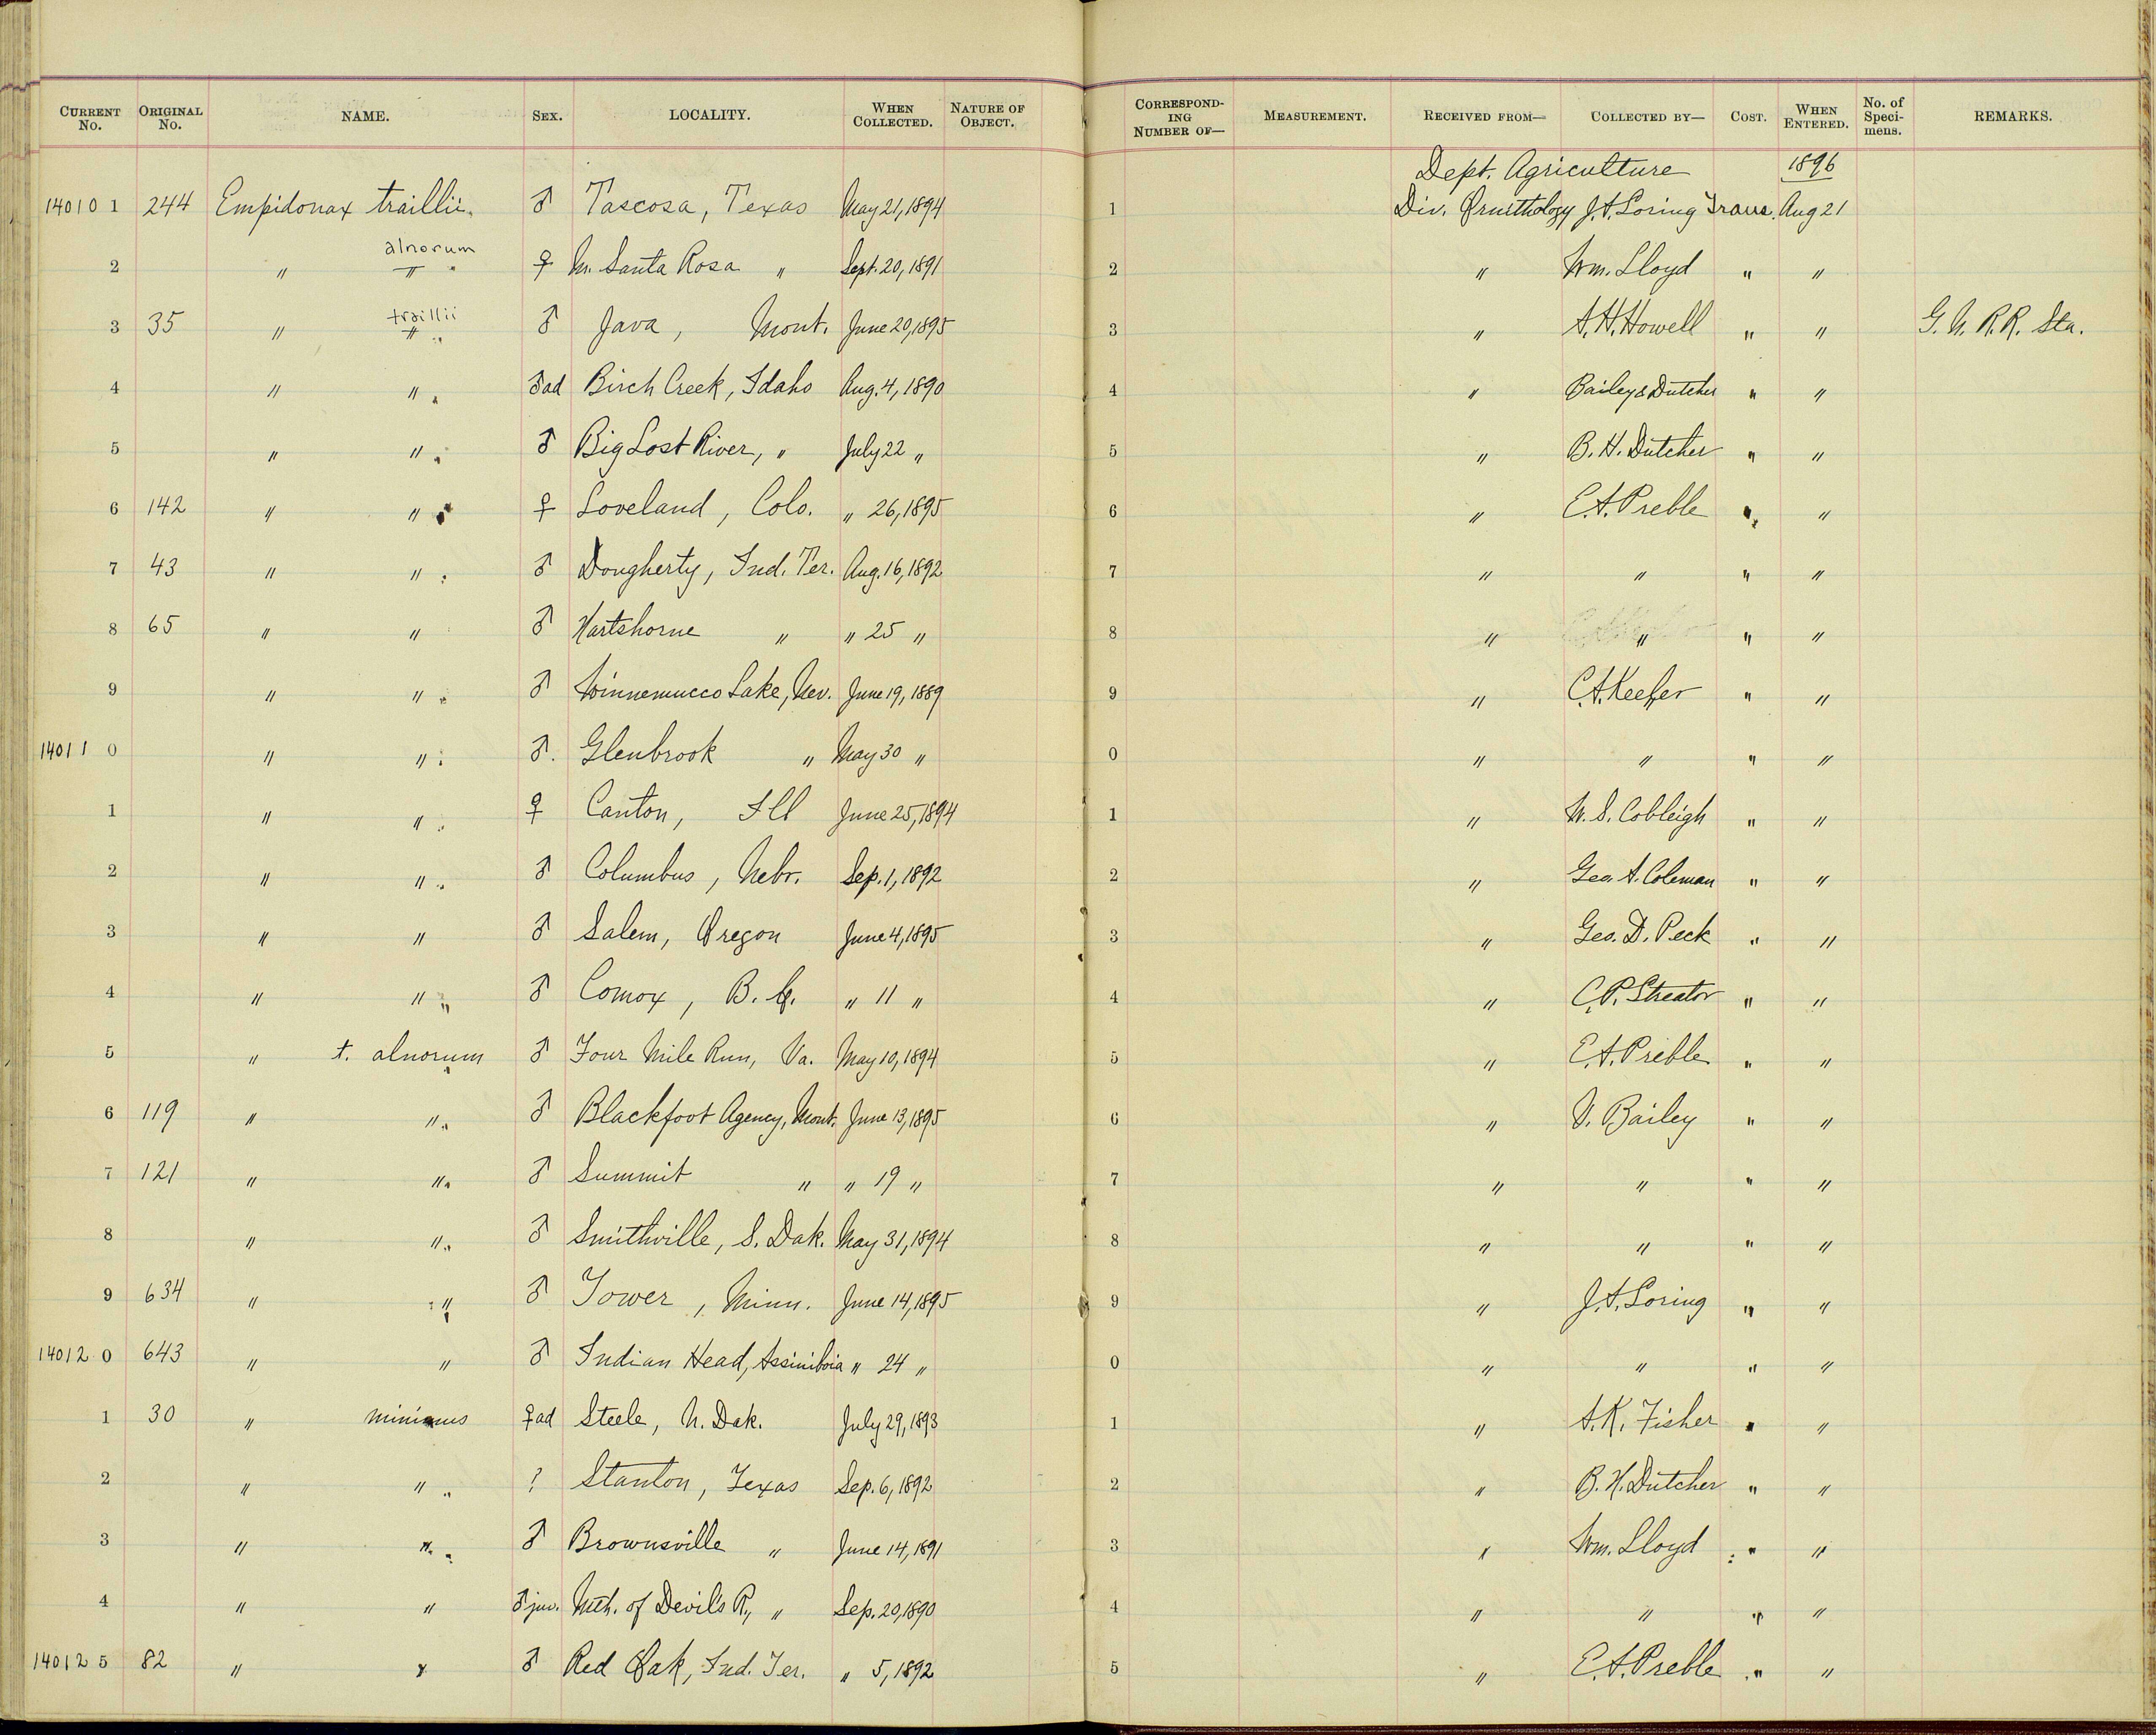 CURRENT No. ORIGINAL No. NAME. SEX. LOCALITY. WHEN COLLECTED. NATURE OF OBJECT. CORRESPONDING NUMBER OF— MEASUREMENT. RECEIVED FROM— COLLECTED BY— COST. WHEN ENTERED. No. of Specimens. REMARKS.
Dept. Agriculture 1896
14010 1 244 Empidonax traillii. ♂ Tascosa, Texas May 21, 1894 1 Div. Ornithology J.A. Loring Trans. Aug 21
alnorum
2 " " ♀ N. Santa Rosa " Sept. 20, 1891 2 " Wm. Lloyd " "
traillii
3 35 " " ♂ Java, Mont. June 20, 1895 3 " A.H. Howell " " G. N. R.R. Sta.
4 " " ♂ad Birch Creek, Idaho Aug. 4, 1890 4 " Bailey & Dutcher " "
5 " " ♂ Big Lost River, " July 22 " 5 " B. H. Dutcher " "
6 142 " " ♀ Loveland, Colo. " 26, 1895 6 " E.A. Preble " "
7 43 " " ♂ Dougherty, Ind. Ter. Aug. 16, 1892 7 " " " "
8 65 " " ♂ Hartshorne " " 25 " 8 " " " "
9 " " ♂ Winnemucco Lake, Nev. June 19, 1889 9 " C.A. Keeler " "
14011 0 " " ♂. Glenbrook " May 30 " 0 " " " "
1 " " ♀ Canton, Ill June 25, 1894 1 " W. S. Cobleigh " "
2 " " ♂ Columbus, Nebr. Sep. 1, 1892 2 " Geo. A. Coleman " "
3 " " ♂ Salem, Oregon June 4, 1895 3 " Geo. D. Peck " "
4 " " ♂ Comox, B. C. " 11 " 4 " C.P. Streator " "
5 " t. alnorum ♂ Four Mile Run, Va. May 10, 1894 5 " E.A. Preble " "
6 119 " " ♂ Blackfoot Agency, Mont. June 13, 1895 6 " V. Bailey " "
7 121 " " ♂ Summit " " 19 " 7 " " " "
8 " " ♂ Smithville, S. Dak. May 31, 1894 8 " " " "
9 634 " " ♂ Tower, Minn. June 14, 1895 9 " J.A. Loring " "
14012 0 643 " " ♂ Indian Head, Assiniboia " 24 " 0 " " " "
1 30 " minimus ♀ad Steele, N. Dak. July 29, 1893 1 " A.K. Fisher " "
2 " " ? Stanton, Texas Sep. 6, 1892 2 " B. H. Dutcher " "
3 " " ♂ Brownsville " June 14, 1891 3 " Wm. Lloyd " "
4 " " ♂ juv. Mth. of Devils R., " Sep. 20, 1890 4 " " " "
14012 5 82 " " ♂ Red Oak, Ind. Ter. " 5, 1892 5 " E.A. Preble " "